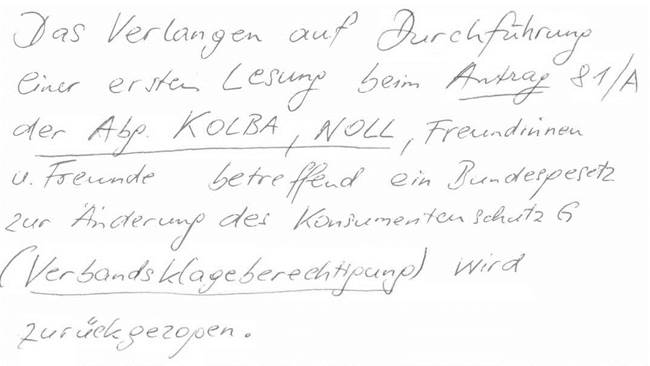 Das Verlangen auf Durchführung
einer ersten Lesung beim Antrag 81/A
der Abg. KOLBA, NOLL, Freundinnen
u. Freunde betreffend ein Bundesgesetz
zur Änderung des Konsumentenschutz G
(Verbandsklageberechtigung) wird
zurückgezogen.